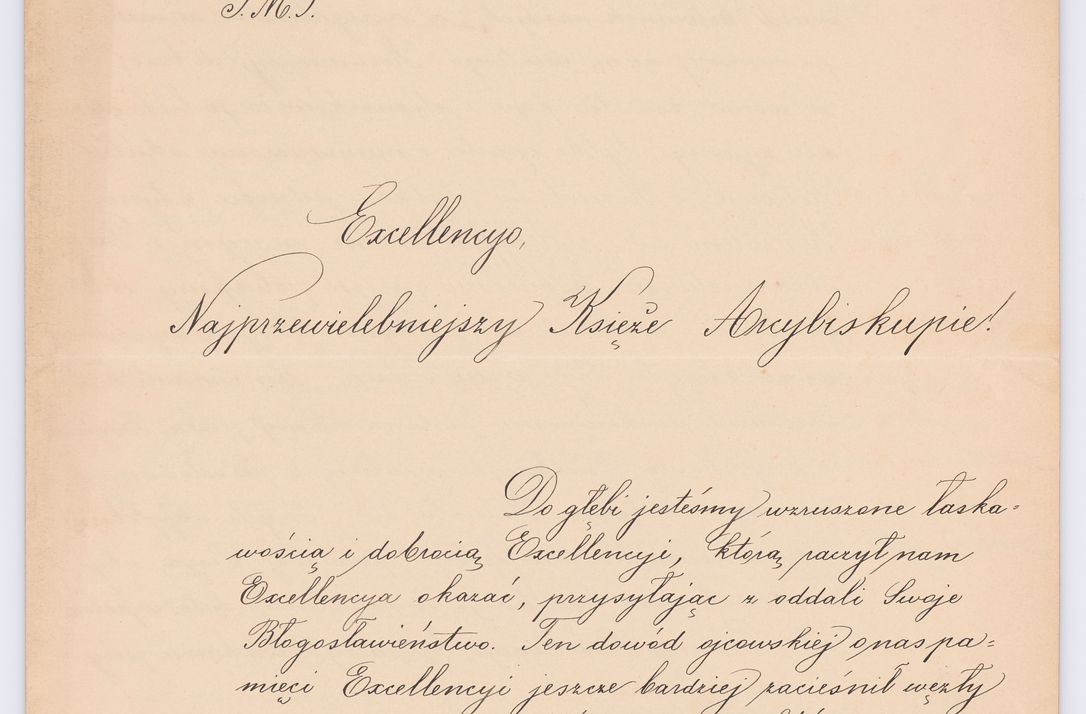 J. M. J.
Excellencyo,
Najprzewielebniejszy Księże Arcybiskupie!
Do głębi jesteśmy wzruszone łaska=
wością i dobrocią Excellencyi, którą raczył nam
Excellencya okazać, przysyłając z oddali Swoje
Błogosławieństwo. Ten dowód ojcowskiej o nas pa=
mięci Excellencyi jeszcze bardziej zacieśnił węzły